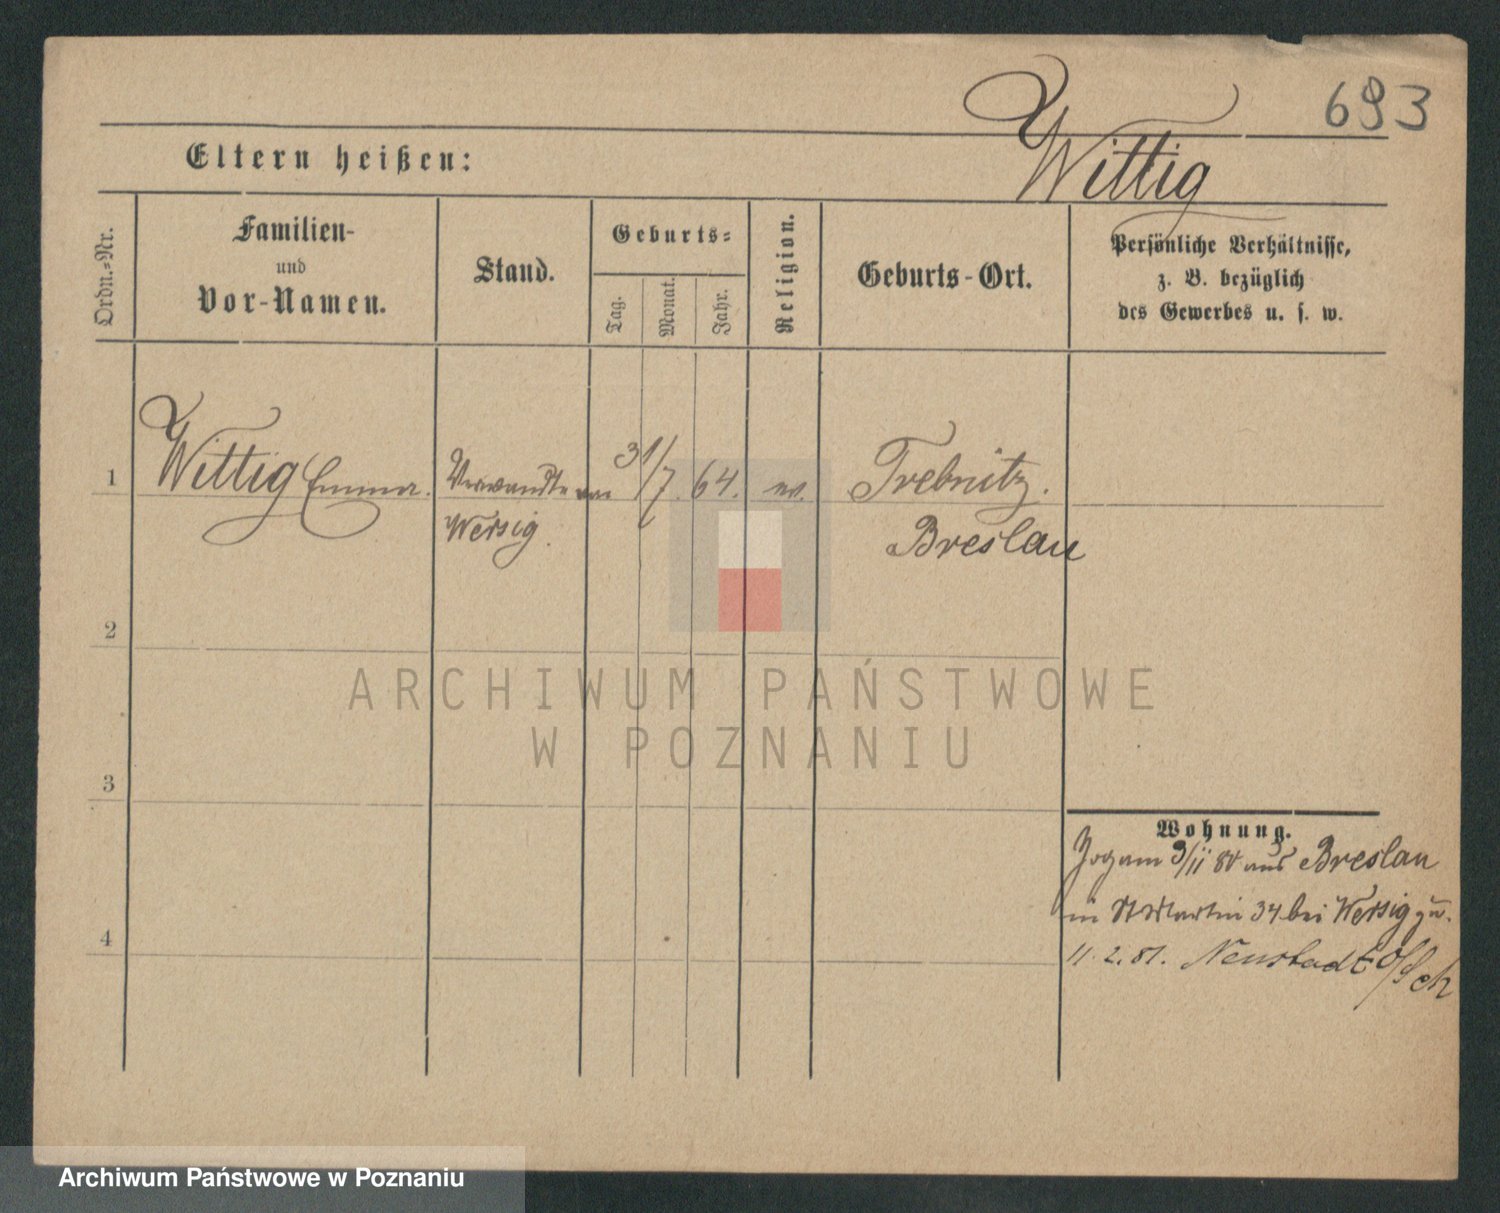 693
Wittig
Eltern heißen:
Ordn.=Nr.
Familien-
und
Vor-Namen.
Stand.
Geburts=
Tag.
Monat.
Jahr.
Religion.
Geburts-Ort.
Persönliche Verhältnisse,
z. B. bezüglich
des Gewerbes u. s. w.
1
Wittig Emma.
Verwandte von
Wersig.
31/7. 64.
ev.
Trebnitz.
Breslau
2
3
4
ARCHIWUM PAŃSTWOWE
W POZNANIU
Wohnung.
Zog am 3/11 80 aus Breslau
in St Martin 34 bei Wersig zu.
11. 2. 81. Neustadt O/Sch
Archiwum Państwowe w Poznaniu